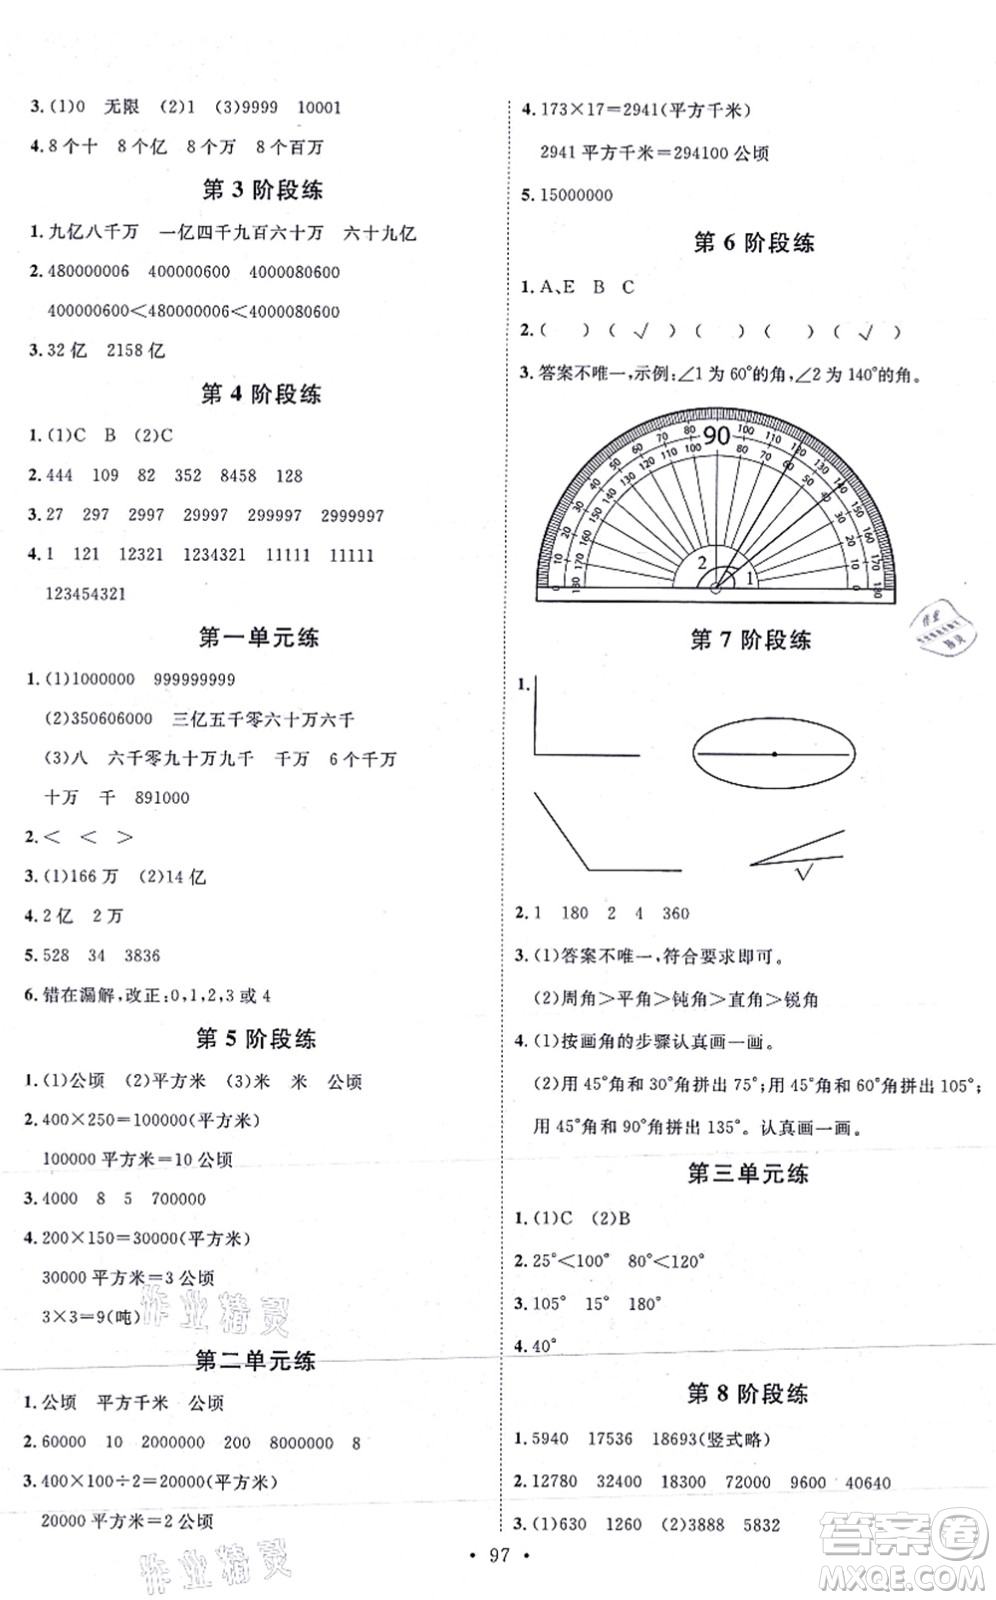 3. (1)0 无限 (2)1 (3)9999 10001
4. 8个十 8个亿 8个万 8个百万
第3阶段练
1. 九亿八千万 一亿四千九百六十万 六十九亿
2. 480000006 400000600 4000080600
400000600<480000006<4000080600
3. 32亿 2158亿
第4阶段练
1. (1)C B (2)C
2. 444 109 82 352 8458 128
3. 27 297 2997 29997 299997 2999997
4. 1 121 12321 1234321 11111 11111
123454321
第一单元练
1. (1)1000000 999999999
(2)350606000 三亿五千零六十万六千
(3)八 六千零九十万九千 千万 6个千万
十万 千 891000
2. < < >
3. (1)166万 (2)14亿
4. 2亿 2万
5. 528 34 3836
6. 错在漏解,改正:0,1,2,3或4
第5阶段练
1. (1)公顷 (2)平方米 (3)米 米 公顷
2. 400×250=100000(平方米)
100000平方米=10公顷
3. 4000 8 5 700000
4. 200×150=30000(平方米)
30000平方米=3公顷
3×3=9(吨)
作业精灵
第二单元练
1. 公顷 平方千米 公顷
2. 60000 10 2000000 200 8000000 8
3. 400×100÷2=20000(平方米)
20000平方米=2公顷
作业精灵
4. 173×17=2941(平方千米)
2941平方千米=294100公顷
5. 15000000
第6阶段练
1. A、E B C
2. ( ) (√) ( ) ( ) (√)
3. 答案不唯一,示例:∠1为60°的角,∠2为140°的角。
90
2 1
第7阶段练
1.
√
2. 1 180 2 4 360
3. (1)答案不唯一,符合要求即可。
(2)周角>平角>钝角>直角>锐角
4. (1)按画角的步骤认真画一画。
(2)用45°角和30°角拼出75°;用45°角和60°角拼出105°;
用45°角和90°角拼出135°。认真画一画。
第三单元练
1. (1)C (2)B
2. 25°<100° 80°<180°
3. 105° 15° 180°
4. 40°
第8阶段练
1. 5940 17536 18693(竖式略)
2. 12780 32400 18300 72000 9600 40640
3. (1)630 1260 (2)3888 5832
• 97 •
答案圈
MXQE.COM